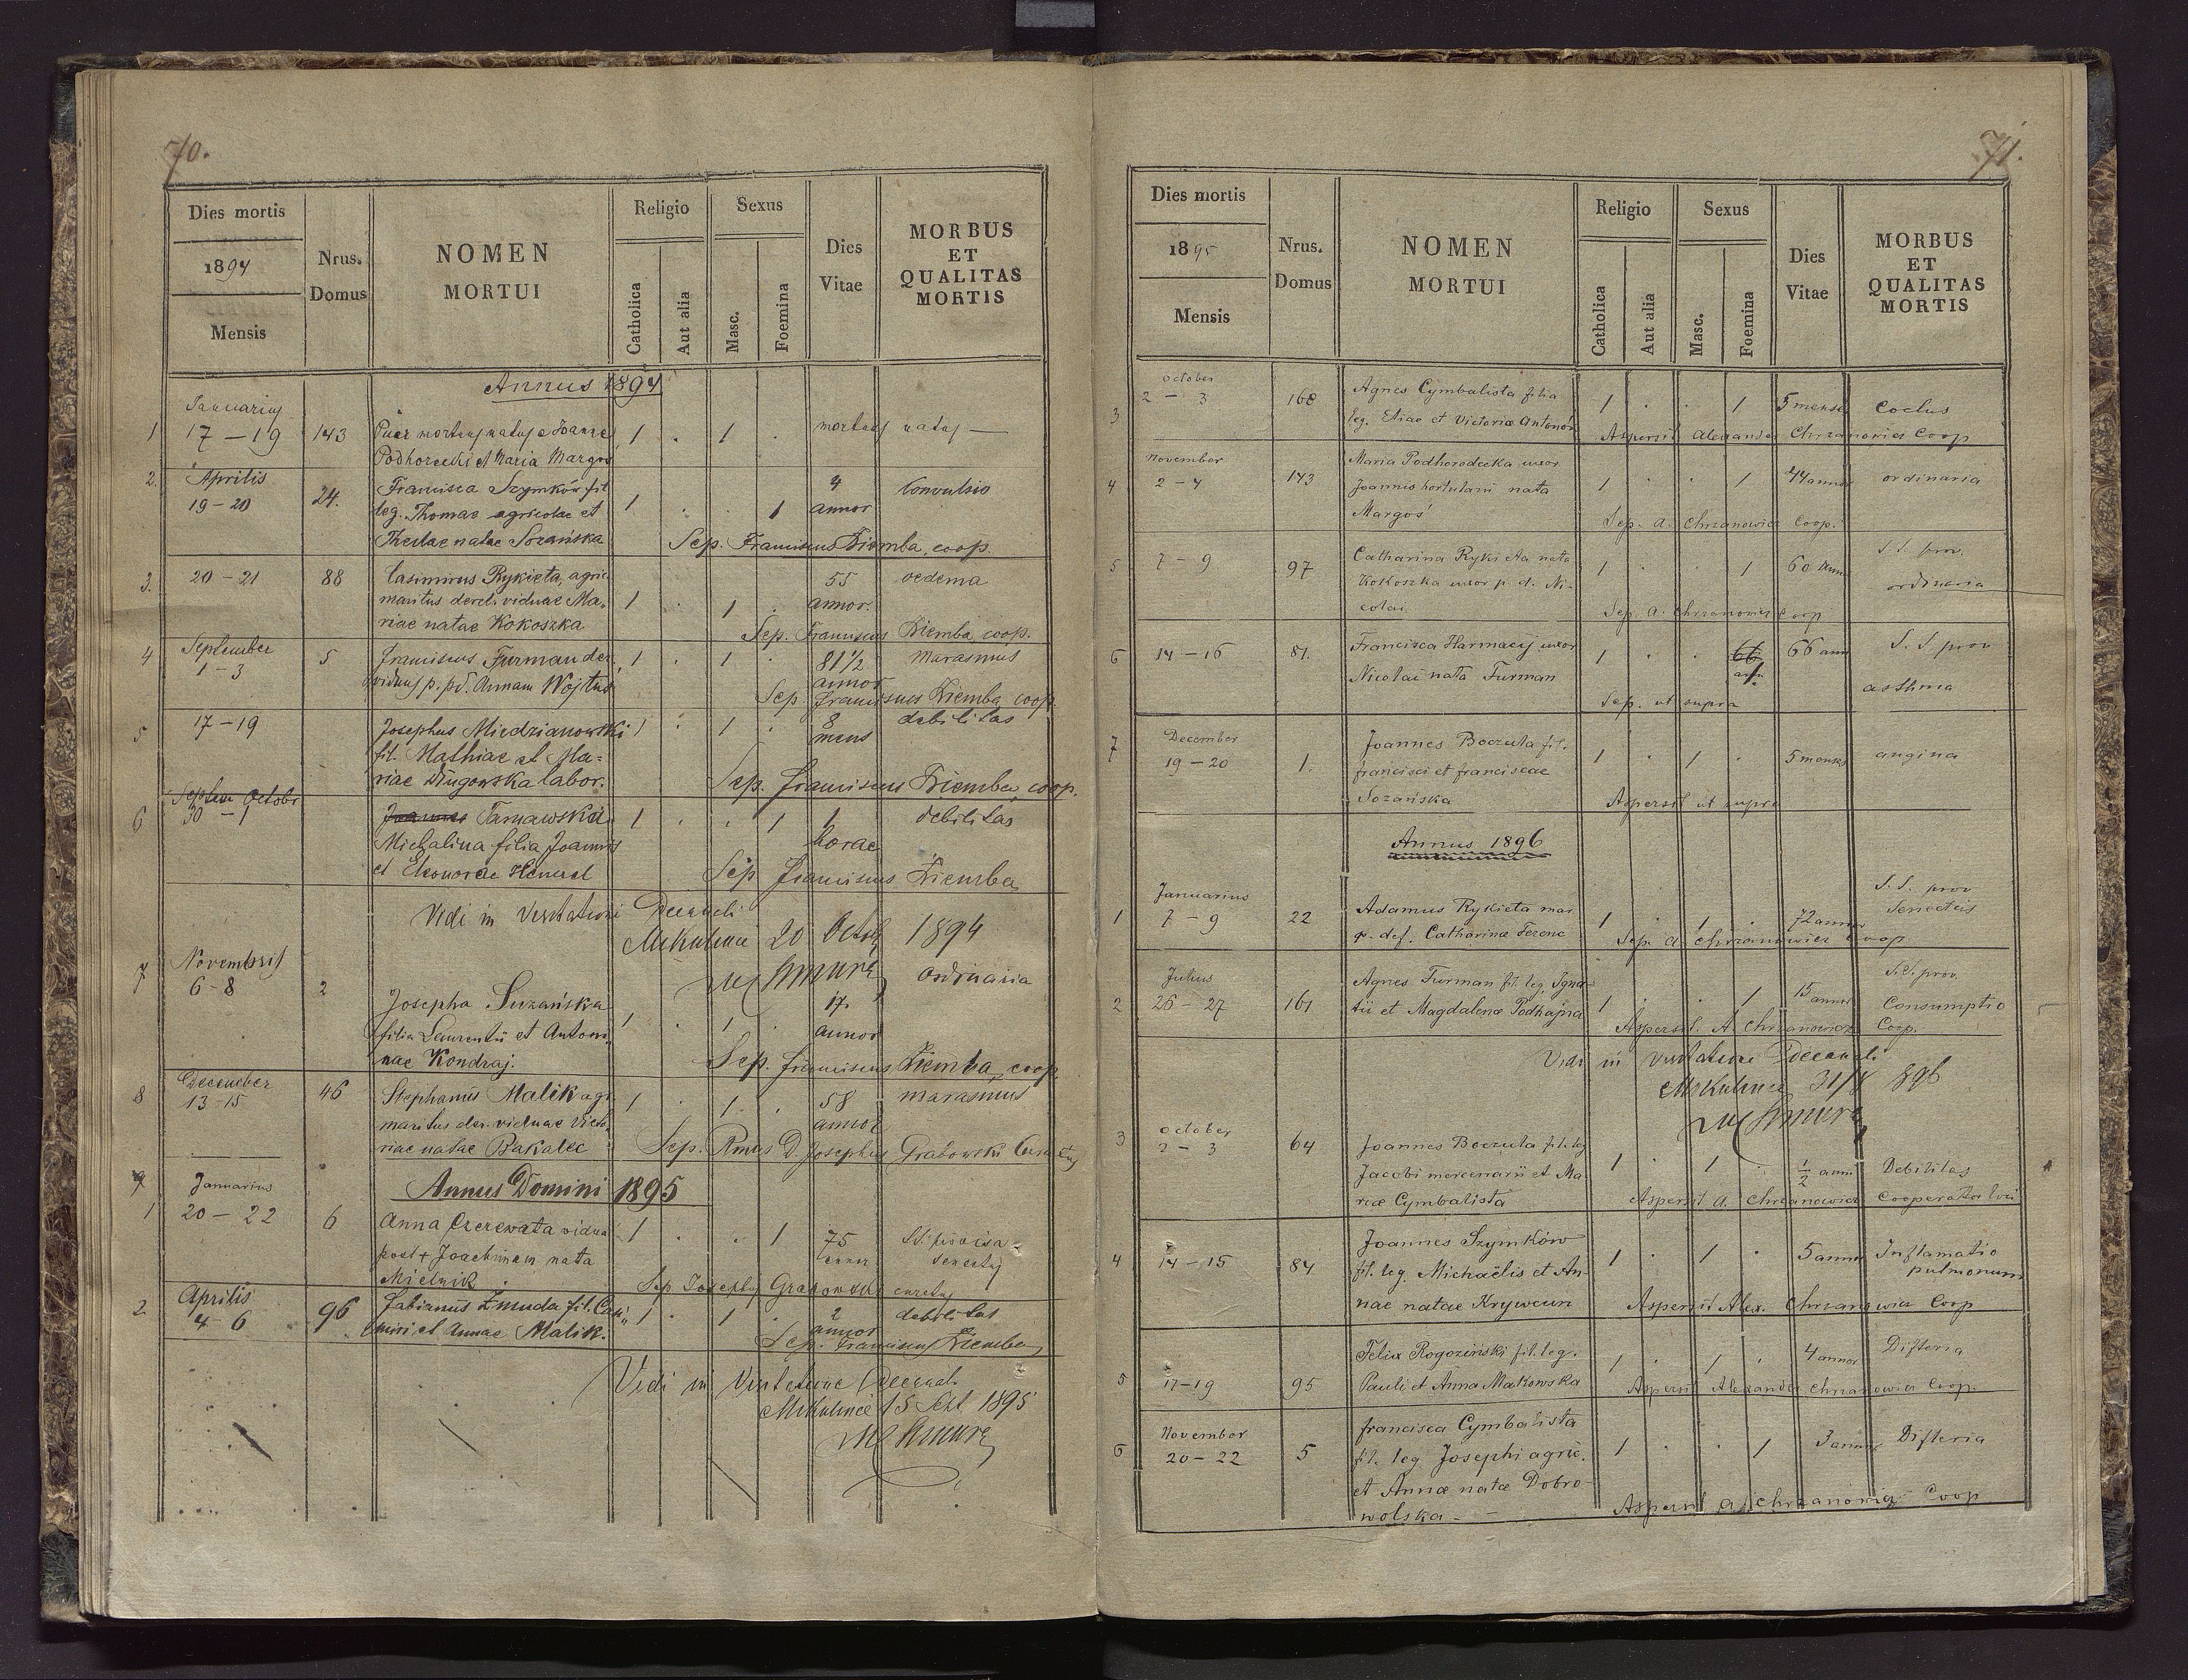 70.
Dies mortis
1894
Mensis
Nrus.
Domus
NOMEN
MORTUI
Religio
Catholica
Aut alia
Sexus
Masc.
Foemina
Dies
Vitae
MORBUS
ET
QUALITAS
MORTIS
Annus 1894
Januarius
1 17 – 19 143 Puer mortuus natus e Joanne 1 . 1 . mortuus natus —
Podhorecki et Maria Margoś
2. Aprilis
19 – 20 24. Francisca Szymków fil 1 . . 1 4 Convulsio
leg. Thomae agricolae et annor
Theclae natae Sozańska Sep. Franciscus Ziemba, coop.
3. 20 – 21 88 Casimirus Rykieta, agric 1 . 1 . 55 oedema
maritus derel. viduae Ma, annor.
riae natae Kokoszka Sep. Franciscus Ziemba, coop.
4 September
1 – 3 5 Franciscus Furman der. 1 . 1 . 81 1/2 marasmus
viduus p. pd. Annam Wojtuś annor
Sep. Franciscus Ziemba, coop.
5 17 – 19 Josephus Miedzianowski 1 . 1 . 8 debilitas
fil. Mathiae et Ma= mens
riae Długowska labor. Sep. Franciscus Ziemba, coop.
Septem Octobr
6 30 – 1 Joannes Tarnawska 1 . . 1 1 debilitas
Michalina filia Joannis horae
et Eleonorae Hensel Sep Franciscus Ziemba
Vidi in Visitatione Decanali
Mikulince 20 Octob 1894
7 Novembris
6 – 8 2 ordinaria
Josepha Suzańska 1 . 1 . 17.
filia Laurentii et Antoni, annor
nae Kondraj. Sep. Franciscus Ziemba, coop.
8 December
13 – 15 46 Stephanus Malik agr. 1 . 1 . 58 marasmus
maritus der. viduae Victo, annor
riae natae Bakalec Sep. Rmus D. Josephus Grabowski Curatus
9 Annus Domini 1895
Januarius
1 20 – 22 6 Anna Czerewata vidua 1 . . 1 75 SS. provisa
post + Joachimum nata annor senectus
Mielnik Sep Josephus Grabowski curatus
2. Aprilis
4 – 6 96 Fabianus Żmuda fil. Casi 1 . 1 . 2 debilitas
miri et Annae Malik. annor
Sep. Franciscus Ziemba
Vidi in Visitatione Decanali
Mikulince 15 Sept 1895
71.
Dies mortis
1895
Mensis
Nrus.
Domus
NOMEN
MORTUI
Religio
Catholica
Aut alia
Sexus
Masc.
Foemina
Dies
Vitae
MORBUS
ET
QUALITAS
MORTIS
October
3 2 – 3 168 Agnes Cymbalista filia 1 . . 1 5 mense Coclus
leg. Eliae et Victoriæ Antonów Aspersit Alexander Chrzanowicz Coop
November
4 2 – 4 143 Maria Podhorodecka uxor 1 . . 1 44 annor ordinaria
Joannis hortulani nata
Margoś Sep. A. Chrzanowicz Coop.
5 7 – 9 97 Catharina Rykieta nata 1 . . 1 60 ann S. S. prov.
Kokoszka uxor p. d. Ni- ordinaria
colai Sep. A. Chrzanowicz Coop
6 14 – 16 81. Francisca Harmacij uxor 1 . . 66 ann 66 ann S. S. prov
Nicolai nata Furman asthma
Sep. ut supra
December
7 19 – 20 1. Joannes Boczuta fil. 1 . 1 . 5 mens angina
francisci et franciscae
Sozańska Aspersit ut supra
Annus 1896
Januarius
1 7 – 9 22 Adamus Rykieta mar 1 . 1 . 72 annor S. S. prov
p. def. Catharinæ Ferenc Senectus
Sep. A. Chrzanowicz Coop
Julius
2 26 – 27 161 Agnes Furman fil. leg. Igna- 1 . . 1 15 annor S.S. prov.
tii et Magdalenæ Podhajna Consumptio
Aspersit. A. Chrzanowicz Coop.
Vidi in Visitatione Decanali
Mikulince 31/8 896
October
3 2 – 3 64 Joannes Boczuta fil. leg
Jacobi mercenarii et Ma 1 . 1 . 1/2 anni Debilitas
riæ Cymbalista Aspersit A. Chrzanowicz Cooperator loci
4 14 – 15 84 Joannes Szymków 1 . 1 . 5 annor Inflamatio
fil. leg. Michaëlis et An- pulmonum
nae natae Krywcun Aspersit Alex. Chrzanowicz Coop
Felix Rogoziński fil. leg. 1 . 1 . 4 annor Difteria
5 17 – 19 95 Pauli et Anna Makowska Aspersit Alexander Chrzanowicz Coop.
November
6 20 – 22 5 francisca Cymbalista
fil. leg. Josephi agric. 1 . . 1 3 annor Difteria
et Annæ natæ Dobro-
wolska – – Aspersit A. Chrzanowicz Coop